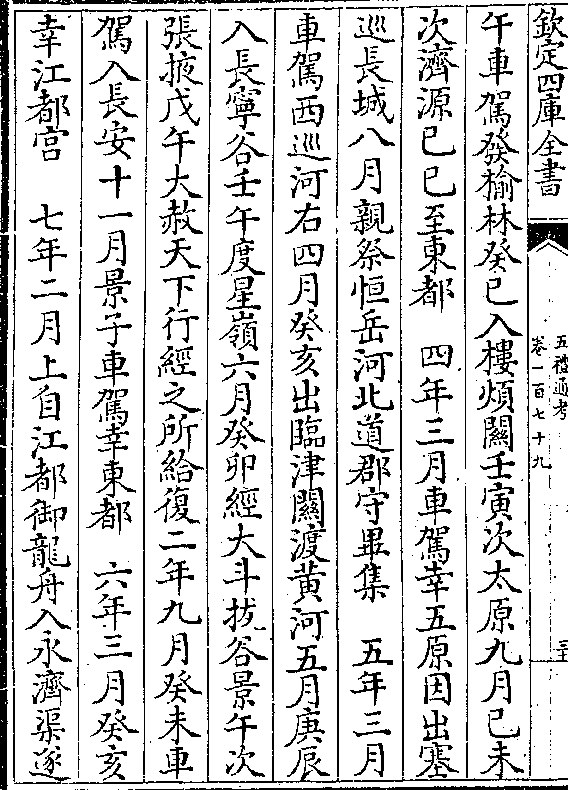 欽定四庫全書
五禮通考
卷一百七十九
午車駕發榆林癸巳入樓煩關壬寅次太原九月己未
次濟源己巳至東都　四年三月車駕幸五原因出塞
巡長城八月親祭恒岳河北道郡守畢集　五年三月
車駕西巡河右四月癸亥出臨津關渡黃河五月庚辰
入長寧谷壬午度星嶺六月癸卯經大斗拔谷景午次
張掖戊午大赦天下行經之所給復二年九月癸未車
駕入長安十一月景子車駕幸東都　六年三月癸亥
幸江都宮　七年二月上自江都御龍舟入永濟渠遂